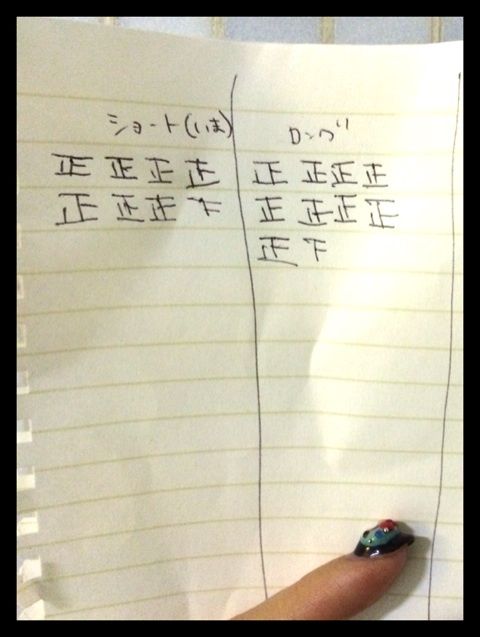 ショート(いま)
正 正 正 正
正 正 正 下
ロング
正 正 正 正
正 正 正 正
正 下